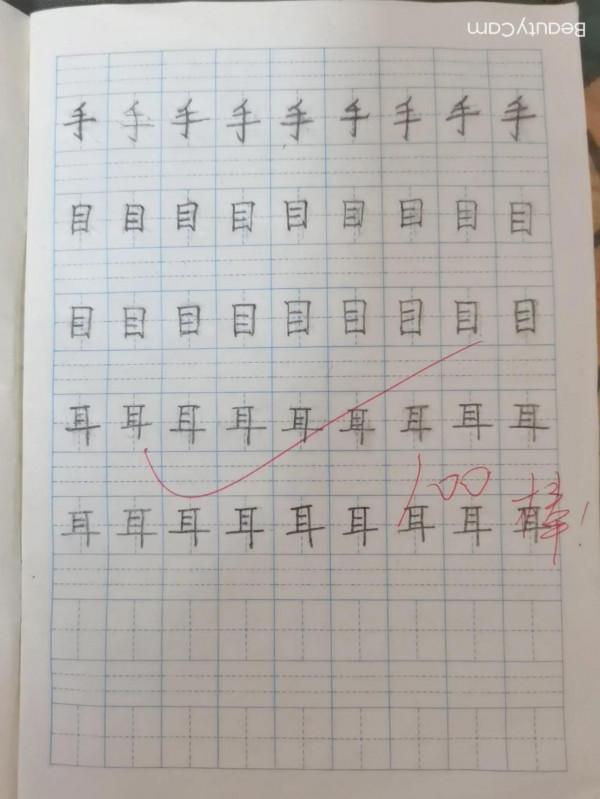 BeautyCam
手手手手手手手手手
目目目目目目目目目
目目目目目目目目目
耳耳耳耳耳耳耳耳耳
100 棒!
耳耳耳耳耳耳耳耳耳